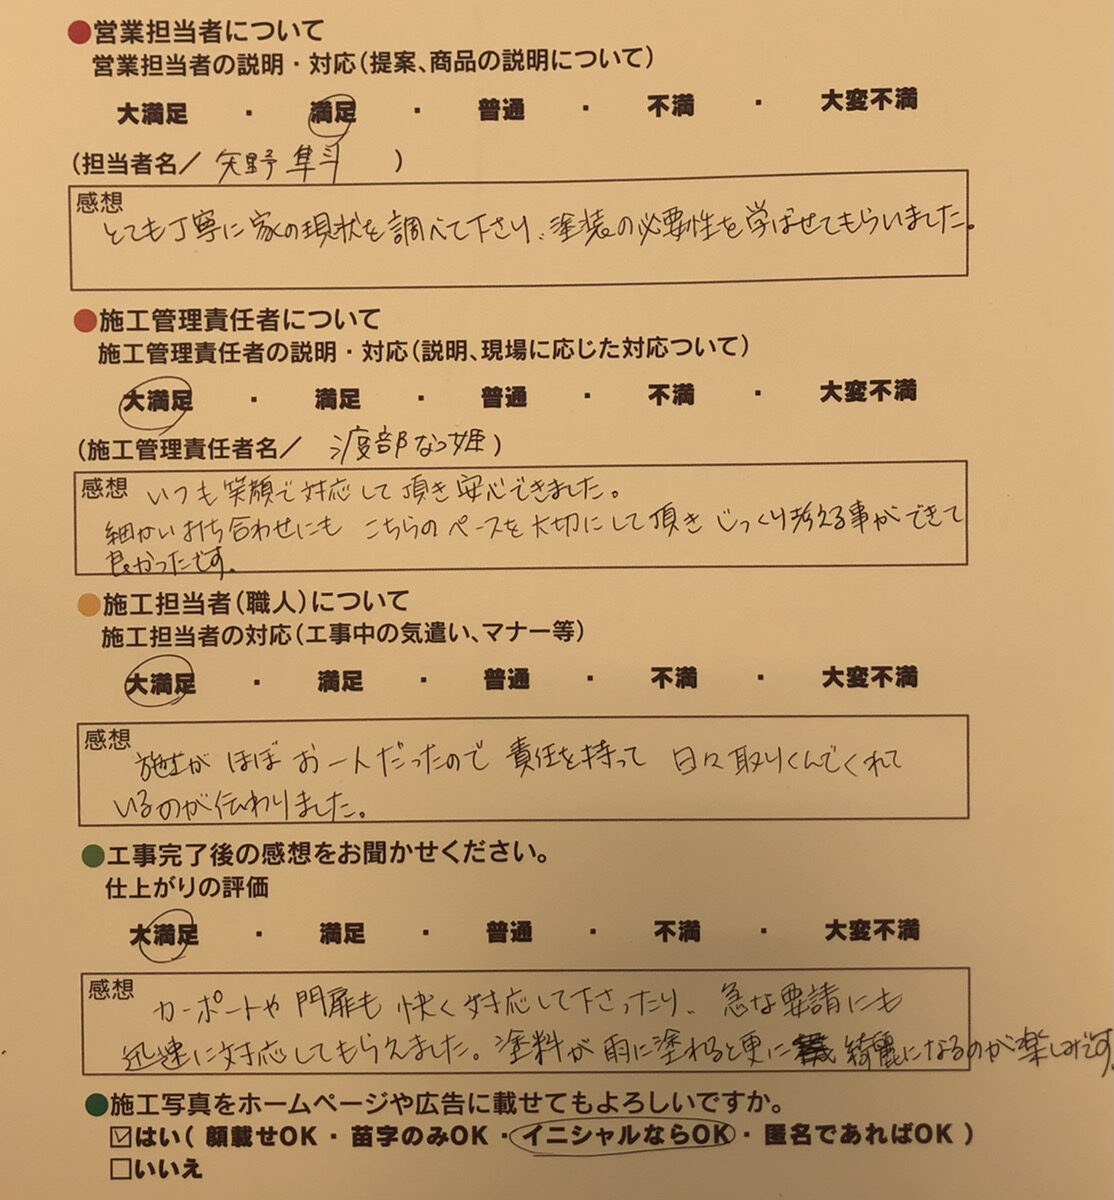 ●営業担当者について
営業担当者の説明・対応(提案、商品の説明について)
大満足 ・ 満足 ・ 普通 ・ 不満 ・ 大変不満
(担当者名／ 矢野 隼斗 )
感想
とても丁寧に家の現状を調べて下さり、塗装の必要性を学ばせてもらいました。
●施工管理責任者について
施工管理責任者の説明・対応(説明、現場に応じた対応ついて)
大満足 ・ 満足 ・ 普通 ・ 不満 ・ 大変不満
(施工管理責任者名／ 渡部なつ姫)
感想 いつも笑顔で対応して頂き安心できました。
細かい打ち合わせにも こちらのペースを大切にして頂き じっくり考える事ができて
良かったです。
●施工担当者(職人)について
施工担当者の対応(工事中の気遣い、マナー等)
大満足 ・ 満足 ・ 普通 ・ 不満 ・ 大変不満
感想
施工が ほぼ お一人だったので 責任を持って 日々取りくんでくれて
いるのが伝わりました。
●工事完了後の感想をお聞かせください。
仕上がりの評価
大満足 ・ 満足 ・ 普通 ・ 不満 ・ 大変不満
感想
カーポートや 門扉も 快く対応して下さったり、 急な要請にも
迅速に対応してもらえました。塗料が雨に塗れると更に 綺麗になるのが楽しみです。
●施工写真をホームページや広告に載せてもよろしいですか。
☑はい( 顔載せOK ・ 苗字のみOK ・ イニシャルならOK ・ 匿名であればOK )
□いいえ